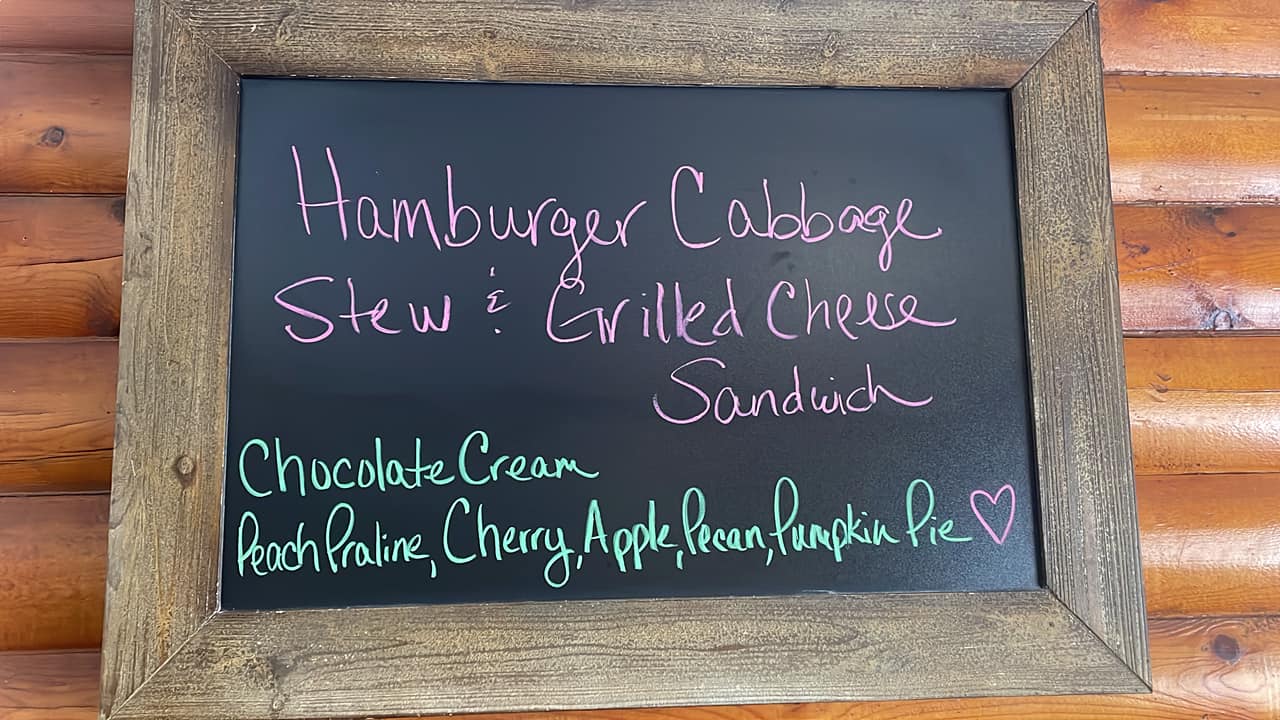 Hamburger Cabbage
Stew & Grilled Cheese
Sandwich
Chocolate Cream
Peach Praline, Cherry, Apple, Pecan, Pumpkin Pie ♡